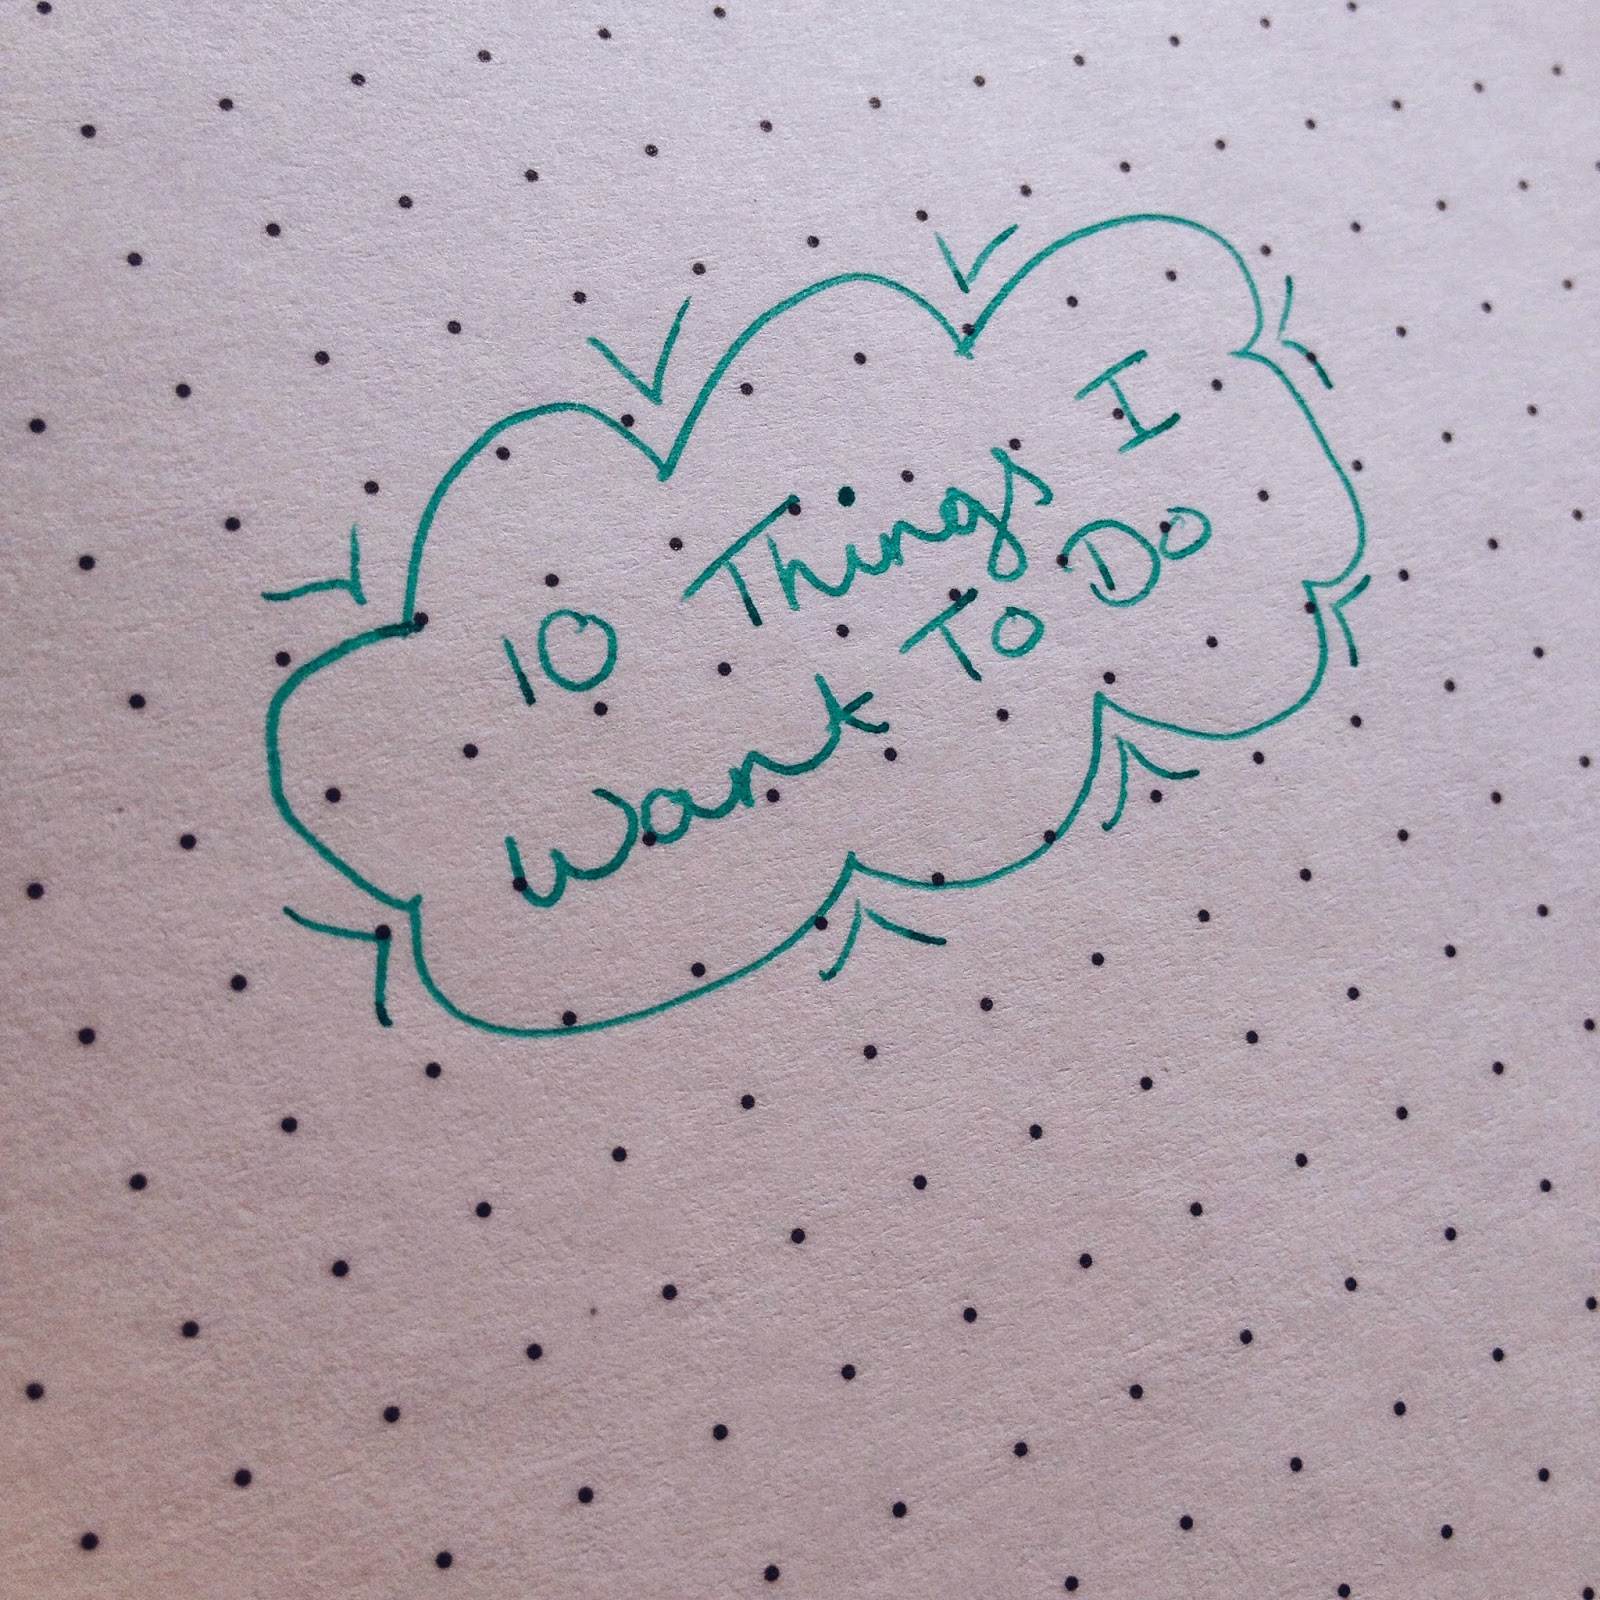 10 Things I
Want To Do